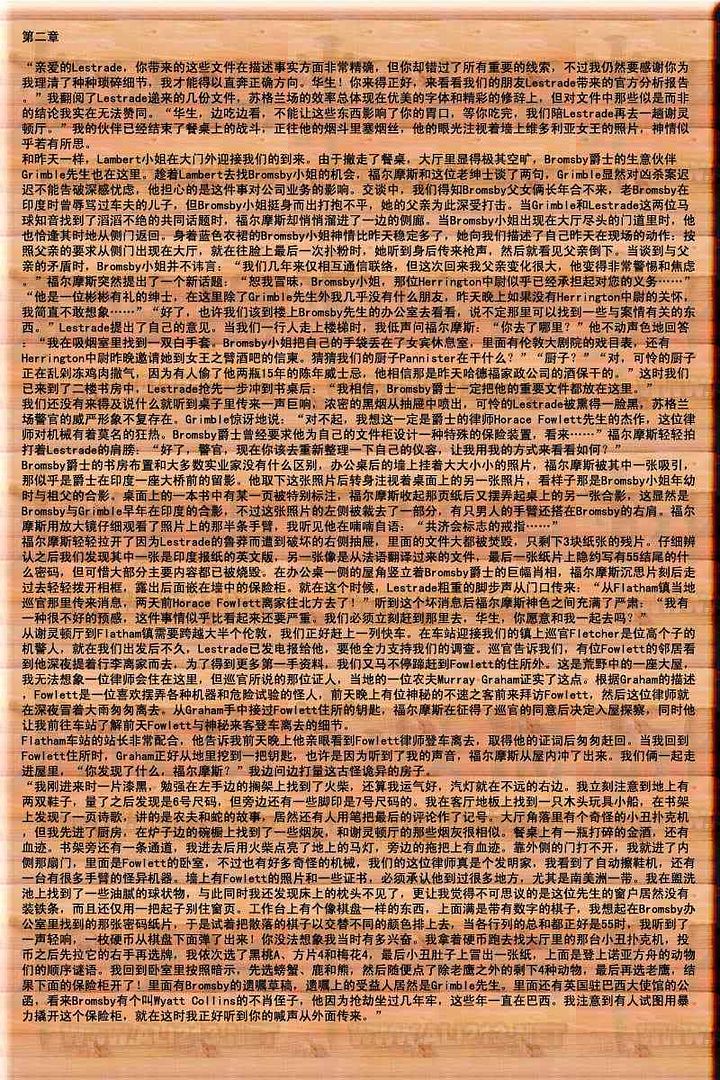 第二章
“亲爱的Lestrade，你带来的这些文件在描述事实方面非常精确，但你却错过了所有重要的线索，不过我仍然要感谢你为
我理清了种种琐碎细节，我才能得以直奔正确方向。华生！你来得正好，来看看我们的朋友Lestrade带来的官方分析报告
。”我翻阅了Lestrade递来的几份文件，苏格兰场的效率总体现在优美的字体和精彩的修辞上，但对文件中那些似是而非
的结论我实在无法赞同。“华生，边吃边看，不能让这些东西影响了你的胃口，等你吃完，我们陪Lestrade再去一趟谢灵
顿厅。”我的伙伴已经结束了餐桌上的战斗，正往他的烟斗里塞烟丝，他的眼光注视着墙上维多利亚女王的照片，神情似
乎若有所思。
和昨天一样，Lambert小姐在大门外迎接我们的到来。由于撤走了餐桌，大厅里显得极其空旷，Bromsby爵士的生意伙伴
Grimble先生也在这里。趁着Lambert去找Bromsby小姐的机会，福尔摩斯和这位老绅士谈了两句，Grimble显然对凶杀案迟
迟不能告破深感忧虑，他担心的是这件事对公司业务的影响。交谈中，我们得知Bromsby父女俩长年合不来，老Bromsby在
印度时曾辱骂过车夫的儿子，但Bromsby小姐挺身而出打抱不平，她的父亲为此深受打击。当Grimble和Lestrade这两位马
球知音找到了滔滔不绝的共同话题时，福尔摩斯却悄悄溜进了一边的侧廊。当Bromsby小姐出现在大厅尽头的门道里时，他
也恰逢其时地从侧门返回。身着蓝色衣裙的Bromsby小姐神情比昨天稳定多了，她向我们描述了自己昨天在现场的动作：按
照父亲的要求从侧门出现在大厅，就在往脸上最后一次扑粉时，她听到身后传来枪声，然后就看见父亲倒下。当谈到与父
亲的矛盾时，Bromsby小姐并不讳言：“我们几年来仅相互通信联络，但这次回来我父亲变化很大，他变得非常警惕和焦虑
。”福尔摩斯突然提出了一个新话题：“恕我冒昧，Bromsby小姐，那位Herrington中尉似乎已经承担起对您的义务……”
“他是一位彬彬有礼的绅士，在这里除了Grimble先生外我几乎没有什么朋友，昨天晚上如果没有Herrington中尉的关怀，
我简直不敢想象……”“好了，也许我们该到楼上Bromsby先生的办公室去看看，说不定那里可以找到一些与案情有关的东
西。”Lestrade提出了自己的意见。当我们一行人走上楼梯时，我低声问福尔摩斯：“你去了哪里？”他不动声色地回答
：“我在吸烟室里找到一双白手套。Bromsby小姐把自己的手袋丢在了女宾休息室，里面有伦敦大剧院的戏目表，还有
Herrington中尉昨晚邀请她到女王之臂酒吧的信柬。猜猜我们的厨子Pannister在干什么？”“厨子？”“对，可怜的厨子
正在乱剁冻鸡肉撒气，因为有人偷了他两瓶15年的陈年威士忌，他相信那是昨天哈德福家政公司的酒保干的。”这时我们
已来到了二楼书房中，Lestrade抢先一步冲到书桌后：“我相信，Bromsby爵士一定把他的重要文件都放在这里。”
我们还没有来得及说什么就听到桌子里传来一声巨响，浓密的黑烟从抽屉中喷出，可怜的Lestrade被熏得一脸黑，苏格兰
场警官的威严形象不复存在。Grimble惊讶地说：“对不起，我想这一定是爵士的律师Horace Fowlett先生的杰作，这位律
师对机械有着莫名的狂热。Bromsby爵士曾经要求他为自己的文件柜设计一种特殊的保险装置，看来……”福尔摩斯轻轻拍
打着Lestrade的肩膀：“好了，警官，现在你该去重新整理一下自己的仪容，让我用我的方式来看看如何？”
Bromsby爵士的书房布置和大多数实业家没有什么区别，办公桌后的墙上挂着大大小小的照片，福尔摩斯被其中一张吸引，
那似乎是爵士在印度一座大桥前的留影。他取下这张照片后转身注视着桌面上的另一张照片，看样子那是Bromsby小姐年幼
时与祖父的合影。桌面上的一本书中有某一页被特别标注，福尔摩斯收起那页纸后又摆弄起桌上的另一张合影，这显然是
Bromsby与Grimble早年在印度的合影，不过这张照片的左侧被裁去了一部分，有只男人的手臂还搭在Bromsby的右肩。福尔
摩斯用放大镜仔细观看了照片上的那半条手臂，我听见他在喃喃自语：“共济会标志的戒指……”
福尔摩斯轻轻拉开了因为Lestrade的鲁莽而遭到破坏的右侧抽屉，里面的文件大都被焚毁，只剩下3块纸张的残片。仔细辨
认之后我们发现其中一张是印度报纸的英文版，另一张像是从法语翻译过来的文件，最后一张纸片上隐约写有55结尾的什
么密码，但可惜大部分主要内容都已被烧毁。在办公桌一侧的屋角竖立着Bromsby爵士的巨幅肖相，福尔摩斯沉思片刻后走
过去轻轻拨开相框，露出后面嵌在墙中的保险柜。就在这个时候，Lestrade粗重的脚步声从门口传来：“从Flatham镇当地
巡官那里传来消息，两天前Horace Fowlett离家往北方去了！”听到这个坏消息后福尔摩斯神色之间充满了严肃：“我有
一种很不好的预感，这件事情似乎比看起来还要严重。我们必须立刻赶到那里去，华生，你愿意和我一起去吗？”
从谢灵顿厅到Flatham镇需要跨越大半个伦敦，我们正好赶上一列快车。在车站迎接我们的镇上巡官Fletcher是位高个子的
机警人，就在我们出发后不久，Lestrade已发电报给他，要他全力支持我们的调查。巡官告诉我们，有位Fowlett的邻居看
到他深夜提着行李离家而去，为了得到更多第一手资料，我们又马不停蹄赶到Fowlett的住所外。这是荒野中的一座大屋，
我无法想象一位律师会住在这里，但巡官所说的那位证人，当地的一位农夫Murray Graham证实了这点。根据Graham的描述
，Fowlett是一位喜欢摆弄各种机器和危险试验的怪人，前天晚上有位神秘的不速之客前来拜访Fowlett，然后这位律师就
在深夜冒着大雨匆匆离去。从Graham手中接过Fowlett住所的钥匙，福尔摩斯在征得了巡官的同意后决定入屋探察，同时他
让我前往车站了解前天Fowlett与神秘来客登车离去的细节。
Flatham车站的站长非常配合，他告诉我前天晚上他亲眼看到Fowlett律师登车离去，取得他的证词后匆匆赶回。当我回到
Fowlett住所时，Graham正好从地里挖到一把钥匙，也许是因为听到了我的声音，福尔摩斯从屋内冲了出来。我们俩一起走
进屋里，“你发现了什么，福尔摩斯？”我边问边打量这古怪诡异的房子。
“我刚进来时一片漆黑，勉强在左手边的搁架上找到了火柴，还算我运气好，汽灯就在不远的右边。我立刻注意到地上有
两双鞋子，量了之后发现是6号尺码，但旁边还有一些脚印是7号尺码的。我在客厅地板上找到一只木头玩具小船，在书架
上发现了一页诗歌，讲的是农夫和蛇的故事，居然还有人用笔把最后的评论作了记号。大厅角落里有个奇怪的小丑扑克机
，但我先进了厨房，在炉子边的碗橱上找到了一些烟灰，和谢灵顿厅的那些烟灰很相似。餐桌上有一瓶打碎的金酒，还有
血迹。书架旁还有一条通道，我进去后用火柴点亮了地上的马灯，旁边的拖把上有血迹。靠外侧的门打不开，我就进了内
侧那扇门，里面是Fowlett的卧室，不过也有好多奇怪的机械，我们的这位律师真是个发明家，我看到了自动擦鞋机，还有
一台有很多手臂的怪异机器。墙上有Fowlett的照片和一些证书，必须承认他到过很多地方，尤其是南美洲一带。我在盥洗
池上找到了一些油腻的球状物，与此同时我还发现床上的枕头不见了，更让我觉得不可思议的是这位先生的窗户居然没有
装铁条，而且还仅用一把起子别住窗页。工作台上有个像棋盘一样的东西，上面满是带有数字的棋子，我想起在Bromsby办
公室里找到的那张密码纸片，于是试着把散落的棋子以交替不同的颜色排上去，当各行列的总和都正好是55时，我听到了
一声轻响，一枚硬币从棋盘下面弹了出来！你没法想象我当时有多兴奋。我拿着硬币跑去找大厅里的那台小丑扑克机，投
币之后先拉它的右手再选牌，我依次选了黑桃A、方片4和梅花4，最后小丑肚子上冒出一张纸，上面是登上诺亚方舟的动物
们的顺序谜语。我回到卧室里按照暗示，先选螃蟹、鹿和熊，然后随便点了除老鹰之外的剩下4种动物，最后再选老鹰，结
果下面的保险柜开了！里面有Bromsby的遗嘱草稿，遗嘱上的受益人居然是Grimble先生。里面还有英国驻巴西大使馆的公
函，看来Bromsby有个叫Wyatt Collins的不肖侄子，他因为抢劫坐过几年牢，这些年一直在巴西。我注意到有人试图用暴
力撬开这个保险柜，就在这时我正好听到你的喊声从外面传来。”